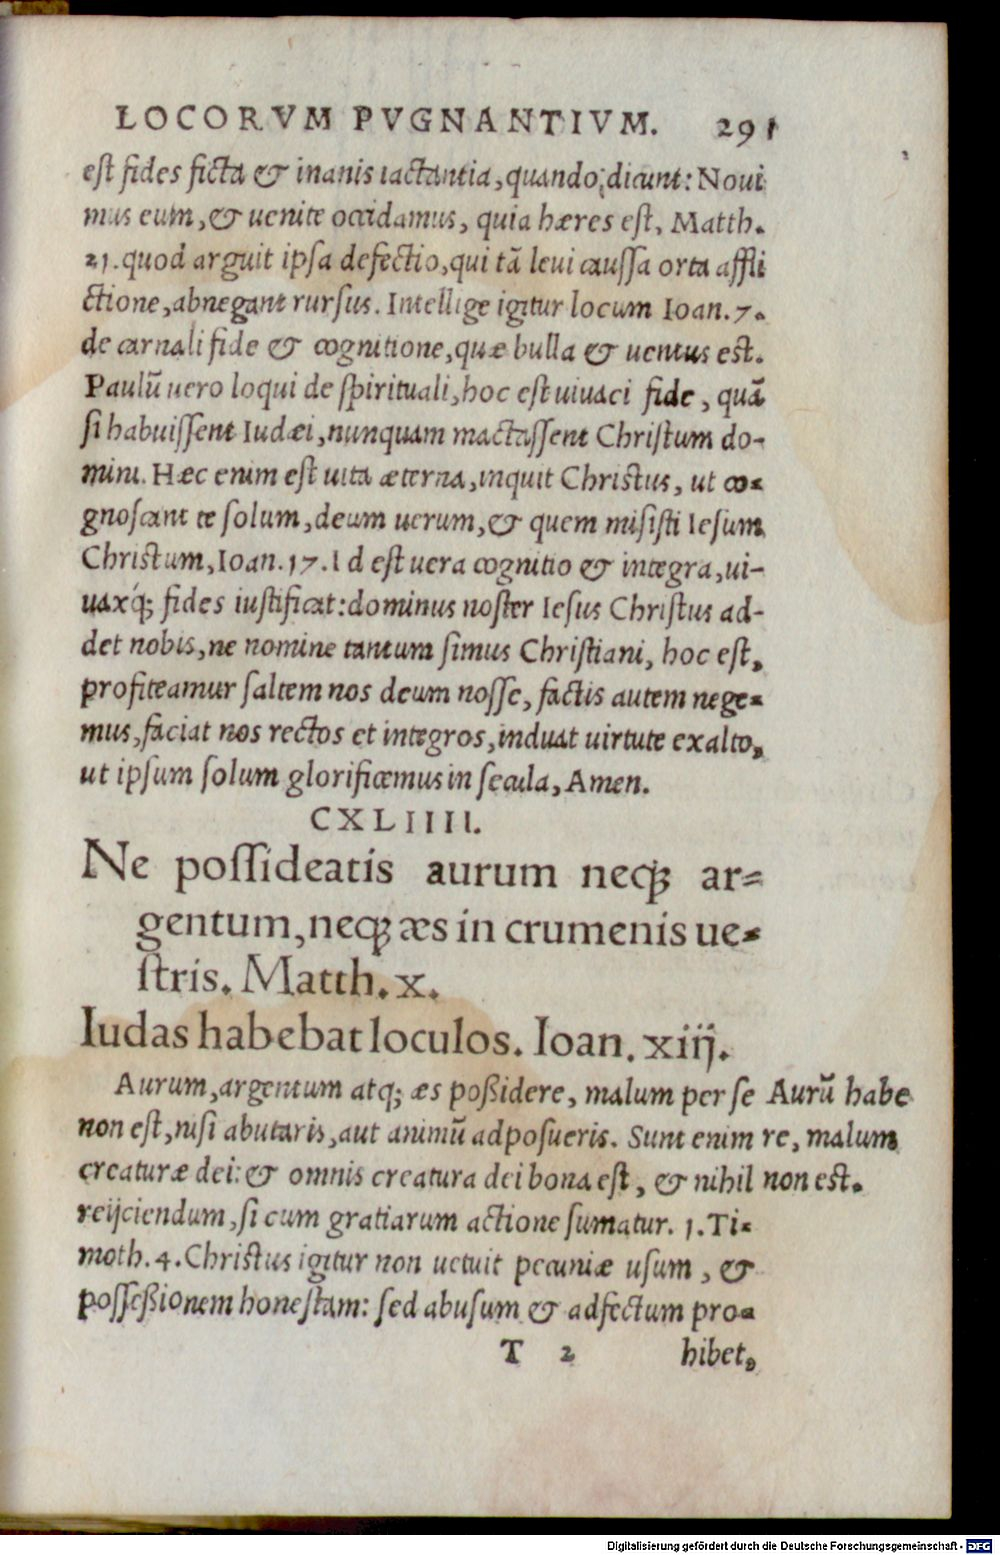 LOCORVM PVGNANTIVM. 291
est fides ficta & inanis iactantia, quando dicunt: Noui
mus eum, & uenite occidamus, quia hæres est, Matth.
21. quod arguit ipsa defectio, qui tã leui caussa orta affli
ctione, abnegant rursus. Intellige igitur locum Ioan. 7.
de carnali fide & cognitione, quæ bulla & uentus est.
Paulũ uero loqui de spirituali, hoc est uiuaci fide, quã
si habuissent Iudæi, nunquam mactassent Christum do-
mini. Hæc enim est uita æterna, inquit Christus, ut co-
gnoscant te solum, deum uerum, & quem misisti Iesum
Christum, Ioan. 17. Id est uera cognitio & integra, ui-
uaxq́; fides iustificat: dominus noster Iesus Christus ad-
det nobis, ne nomine tantum simus Christiani, hoc est,
profiteamur saltem nos deum nosse, factis autem nege-
mus, faciat nos rectos et integros, induat uirtute ex alto,
ut ipsum solum glorificemus in secula, Amen.
CXLIIII.
Ne possideatis aurum neq; ar-
gentum, neq; æs in crumenis ue-
stris. Matth. x.
Iudas habebat loculos. Ioan. xiij.
Aurum, argentum atq; æs poßidere, malum per se
non est, nisi abutaris, aut animũ adposueris. Sunt enim
creaturæ dei: & omnis creatura dei bona est, & nihil
reijciendum, si cum gratiarum actione sumatur. 1. Ti-
moth. 4. Christus igitur non uetuit pecuniæ usum, &
posseßionem honestam: sed abusum & adfectum pro-
Aurũ habe
re, malum
non est.
T 2 hibet,
Digitalisierung gefördert durch die Deutsche Forschungsgemeinschaft - DFG